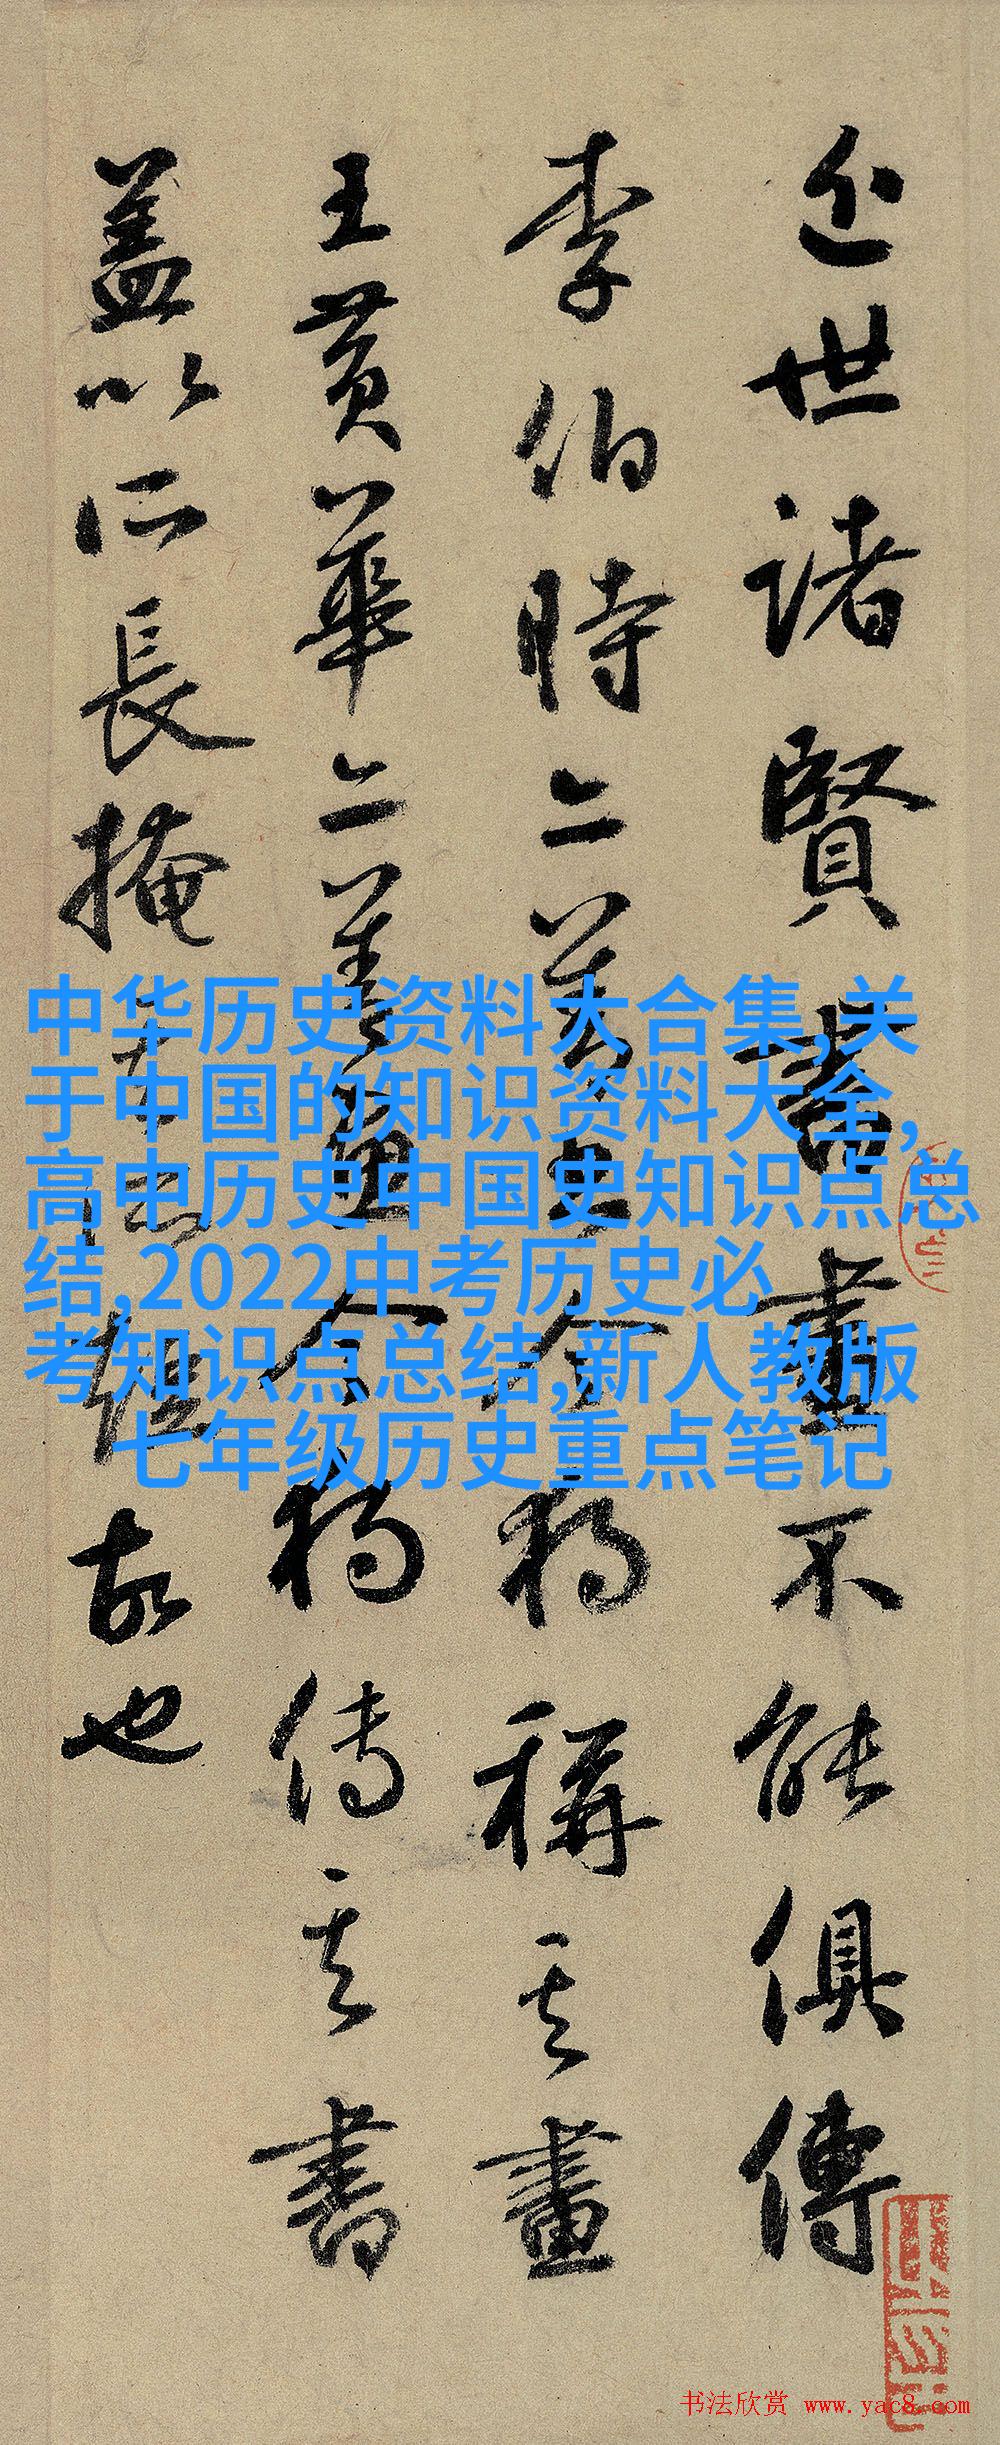 近世諸賢書畫不能俱傳
李伯時善今獨稱其畫
王黃華善畫今獨傳其書
蓋以所長掩其所短故也
中华历史资料大合集,关
于中国的知识资料大全,
高中历史中国史知识点总
结,2022中考历史必
考知识点总结,新人教版
七年级历史重点笔记
书法欣赏 www.yac8.com